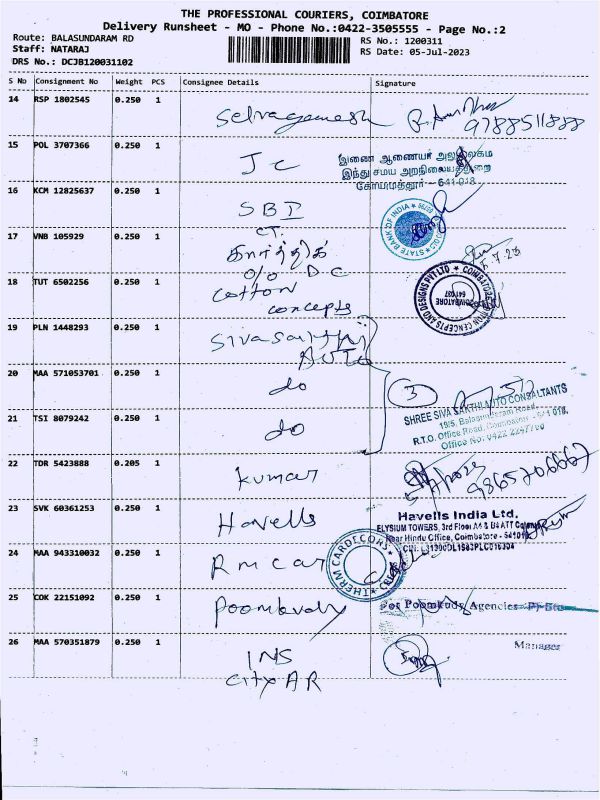 THE PROFESSIONAL COURIERS, COIMBATORE
Delivery Runsheet - MO - Phone No.:0422-3505555 - Page No.:2
Route: BALASUNDARAM RD
RS No.: 1200311
Staff: NATARAJ
RS Date: 05-Jul-2023
DRS No.: DCJB120031102
S No Consignment No Weight PCS Consignee Details Signature
14 RSP 1802545 0.250 1
Selvaganesh
9788511888
15 POL 3707366 0.250 1
Jc
இணை ஆணையர் அலுவலகம்
இந்து சமய அறநிலையத்துறை
கோயமுத்தூர் - 641 018
16 KCM 12825637 0.250 1
SBI
CT.
STATE BANK OF INDIA
17 VNB 105929 0.250 1
கார்த்திக்
O/O D C
18 TUT 6502256 0.250 1
Cotton
concepts
COIMBATORE
641037
19 PLN 1448293 0.250 1
Sivasakthi
AUTO
20 MAA 571053701 0.250 1
do
3
SHREE SIVA SAKTHI AUTO CONSULTANTS
19/5, Balasundaram Road,
R.T.O. Office Road, Coimbatore - 641 018.
Office No: 0422 2247760
21 TSI 8079242 0.250 1
do
22 TDR 5423888 0.205 1
kumar
9865206667
23 SVK 60361253 0.250 1
Havells
Havells India Ltd.
ELYSIUM TOWERS, 3rd Floor A4 & B4 ATT Colony
Near Hindu Office, Coimbatore - 641018
CIN: L31900DL1983PLC016304
24 MAA 943310032 0.250 1
Rm car
THERM CARDECORS
25 COK 22151092 0.250 1
Poomkudy
For Poomkudy Agencies P) Ltd
26 MAA 570351879 0.250 1
INS
City AR
Manager